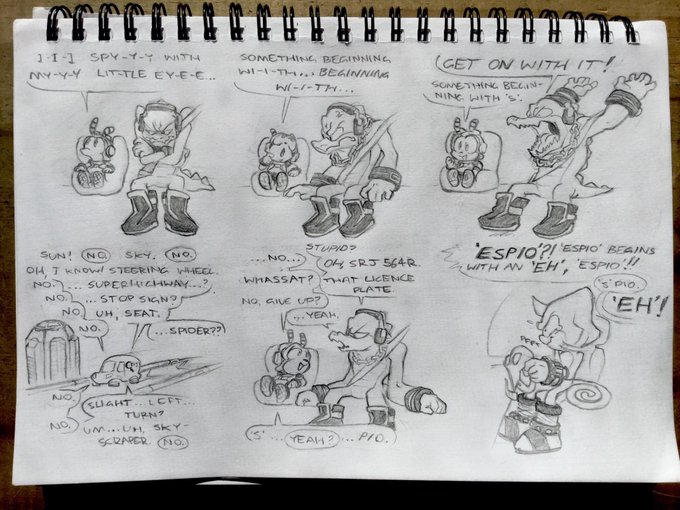 I-I-I SPY-Y-Y WITH
MY-Y-Y LIT-TLE EY-E-E...
SOMETHING BEGINNING
WI-I-TH... BEGINNING
WI-I-TH...
GET ON WITH IT!
SOMETHING BEGIN-
NING WITH 'S'.
SUN! NO. SKY. NO.
OH, I KNOW! STEERING WHEEL.
NO. ... SUPERHIGHWAY...?
NO. ... STOP SIGN?
NO. UH, SEAT.
NO. ...SPIDER??
NO. SLIGHT... LEFT...
TURN?
NO. UM... UH, SKY-
SCRAPER. NO.
STUPID?
...NO... OH, SRJ 564R.
WHASSAT? THAT LICENCE
PLATE.
NO, GIVE UP?
...YEAH.
'S'... YEAH? ...PIO.
'ESPIO'?! 'ESPIO' BEGINS
WITH AN 'EH', 'ESPIO'!!
'S' PIO.
'EH'!